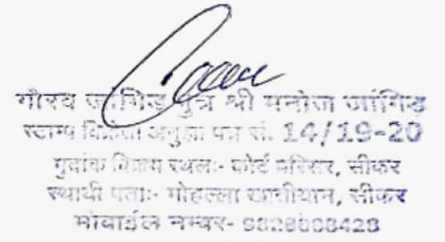 गौरव जांगिड पुत्र श्री मनोज जांगिड
स्टाम्प विक्रेता अनुज्ञा पत्र सं. 14/19-20
मुद्रांक विक्रय स्थल:- कोर्ट परिसर, सीकर
स्थायी पता:- मोहल्ला खातीयान, सीकर
मोबाईल नम्बर-